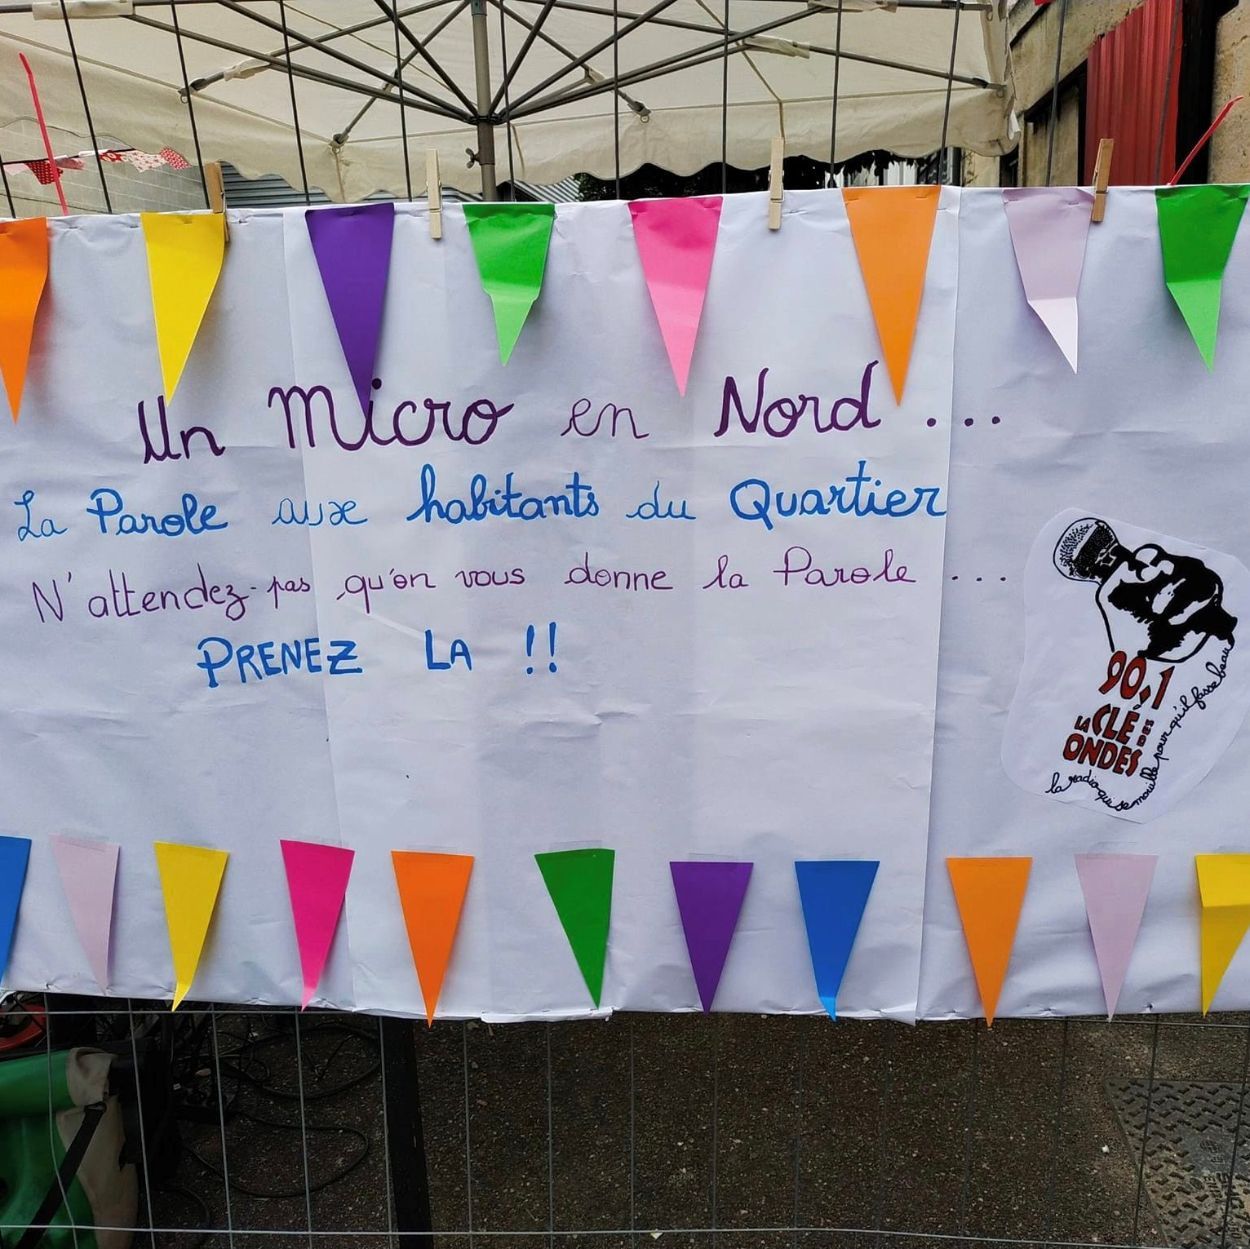 Un Micro en Nord ...
La Parole aux habitants du Quartier
N'attendez-pas qu'on vous donne la Parole ...
PRENEZ LA !!
90.1
LA CLÉ DES
ONDES
la radio qui se mouille pour qu'il fasse beau